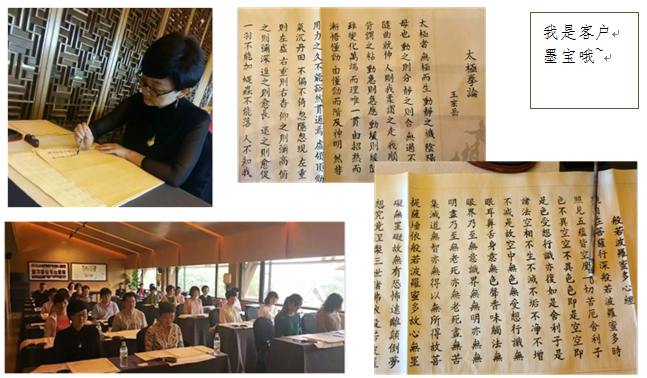 我是客户
墨宝哦~
太極拳論
王宗岳
太極者無極而生動靜之機陰陽
母也動之則分靜之則合無過不
隨曲就伸人剛我柔謂之走我順
背謂之粘動急則急應動緩則緩隨
雖變化萬端而理唯一貫由招熟而
漸悟懂勁由懂勁而階及神明然非
用力之久不能豁然貫通焉虛領頂勁
氣沉丹田不偏不倚忽隱忽現左重
則左虛右重則右杳仰之則彌高俯
之則彌深進之則愈長退之則愈促
一羽不能加蠅蟲不能落人不知我
般若波羅蜜多心經
自在菩薩行深般若波羅蜜多時
照見五蘊皆空度一切苦厄舍利子
色不異空空不異色色即是空空即
是色受想行識亦復如是舍利子是
諸法空相不生不滅不垢不淨不增
不減是故空中無色無受想行識無
眼耳鼻舌身意無色聲香味觸法無
眼界乃至無意識界無無明亦無無
明盡乃至無老死亦無老死盡無苦
集滅道無智亦無得以無所得故菩
提薩埵依般若波羅蜜多故心無罣
礙無罣礙故無有恐怖遠離顛倒夢
想究竟涅槃三世諸佛依般若波羅